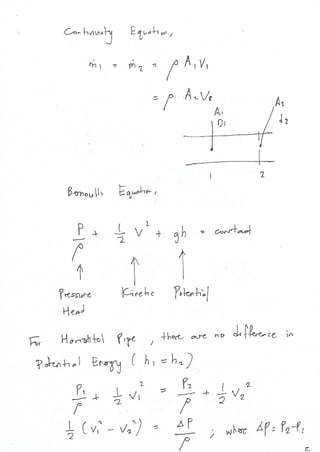 Continuity Equation,
ṁ₁ = ṁ₂ = ρ A₁V₁
= ρ A₂V₂
A₁
D₁
A₂
d₂
1
2
Bernoulli Equation,
P/ρ + 1/2 V² + gh = constant
↑ ↑ ↑
Pressure Kinetic Potential
Head
For Horizhtol Pipe, there are no difference in
Potential Energy (h₁ = h₂)
P₁/ρ + 1/2 V₁² = P₂/ρ + 1/2 V₂²
1/2 (V₁² - V₂²) = ΔP/ρ ; where ΔP = P₂-P₁